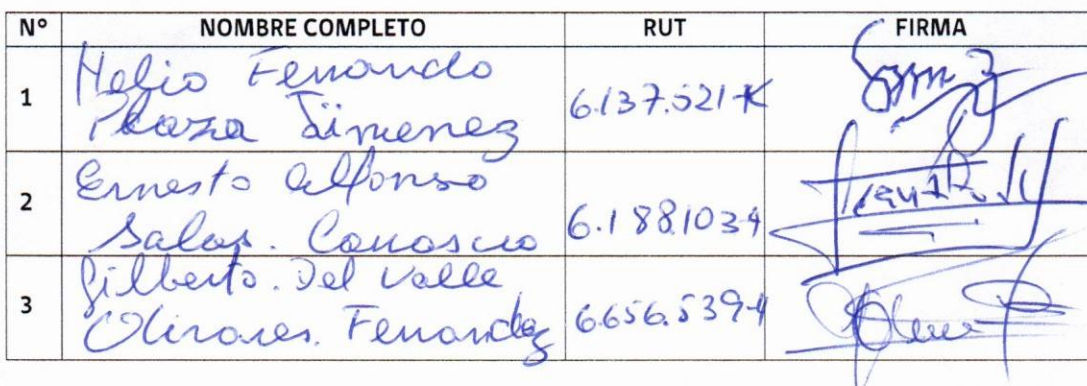 N° NOMBRE COMPLETO RUT FIRMA
1 Helio Fernando
Plaza Jimenez 6.137.521-K
2 Ernesto Alfonso
Salas. Carrasco 6.188.103-4
3 Gilberto. Del Valle
Olivares. Fernandez 6.656.539-4